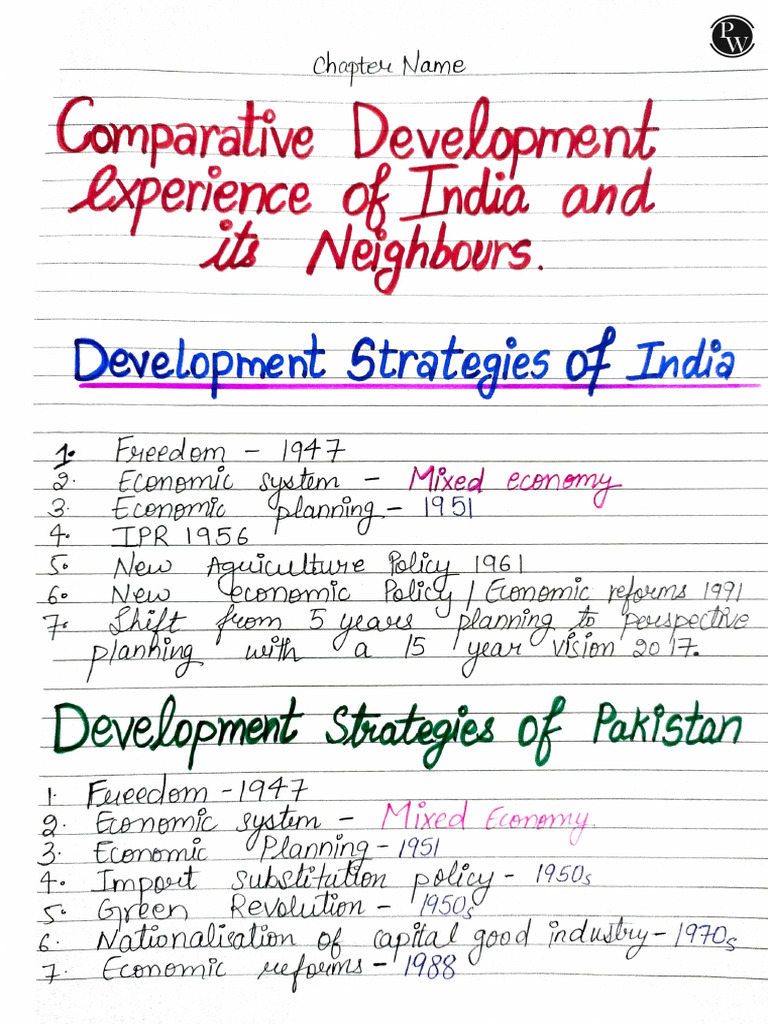 PW
Chapter Name
Comparative Development
experience of India and
its Neighbours.
Development Strategies of India
1. Freedom - 1947
2. Economic system - Mixed economy
3. Economic planning - 1951
4. IPR 1956
5. New Aguiculture Policy 1961
6. New economic Policy / Economic reforms 1991
7. Shift from 5 years planning to perspective
planning with a 15 year vision 2017.
Development Strategies of Pakistan
1. Freedom - 1947
2. Economic system - Mixed Economy.
3. Economic Planning - 1951
4. Import substitution policy - 1950s
5. Green Revolution - 1950s
6. Nationalisation of capital good industry - 1970s
7. Economic reforms - 1988